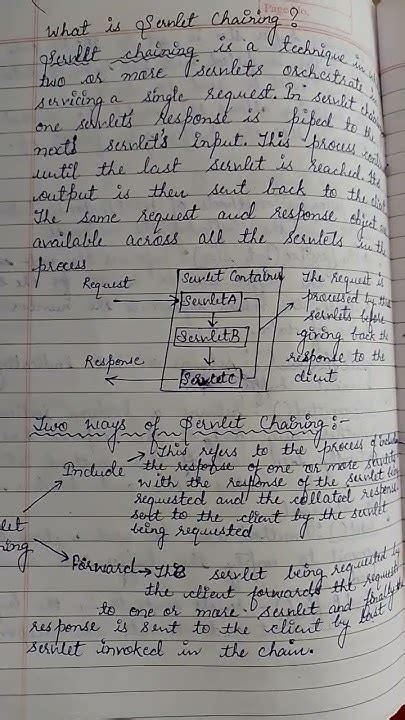 Page No.
What is Servlet Chaining?
Servlet chaining is a technique in
two or more servlets orchestrate
servicing a single request. In servlet
one servlet's response is piped to the
next servlet's input. This process
until the last servlet is reached. Its
output is then sent back to the
The same request and response object
available across all the servlets in the
process
Request
Servlet Container
ServletA
ServletB
ServletC
Response
The request is
processed by
servlets before
giving back the
response to the
client
Two Ways of Servlet Chaining:-
Include → This refers to the process of
the response of one or more servlets
with the response of the servlet
requested and the collated response
sent to the client by the servlet
being requested
Forward → The servlet being requested by
the client forwards the request
to one or more servlet and finally the
response is sent to the client by last
servlet invoked in the chain.